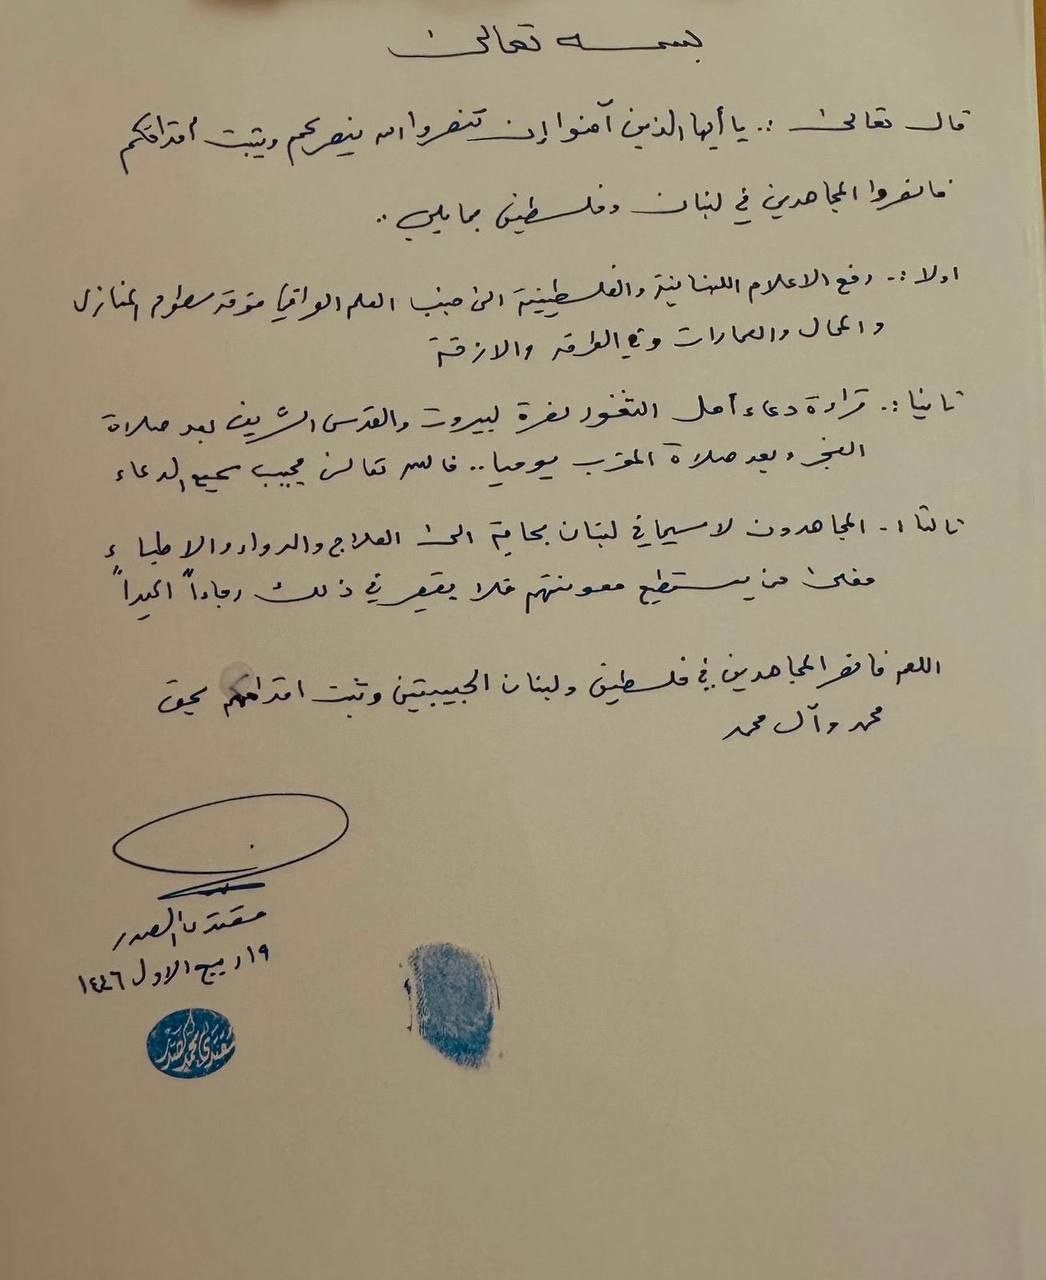 بسمه تعالى
قال تعالى :. يا أيها الذين آمنوا إن تنصروا الله ينصركم ويثبت أقدامكم
فانصروا المجاهدين في لبنان وفلسطين بما يلي ..
اولا :. رفع الاعلام اللبنانية والفلسطينية الى جنب العلم العراقي فوق سطوح المنازل
والمحال والعمارات وفي الطرق والازقة
ثانيا :. قراءة دعاء أهل الثغور نصرة لبيروت والقدس الشريف بعد صلاة
الفجر وبعد صلاة المغرب يوميا .. فالله تعالى مجيب سميع الدعاء
ثالثا :. المجاهدون لا سيما في لبنان بحاجة الى العلاج والدواء والاطباء
فعلى من يستطيع معونتهم فلا يقصر في ذلك رجاءاً اكيداً
اللهم فانصر المجاهدين في فلسطين ولبنان الحبيبتين وثبت اقدامهم بحق
محمد وآل محمد
مقتدى الصدر
١٩ ربيع الاول ١٤٤٦
مقتدى محمد الصدر